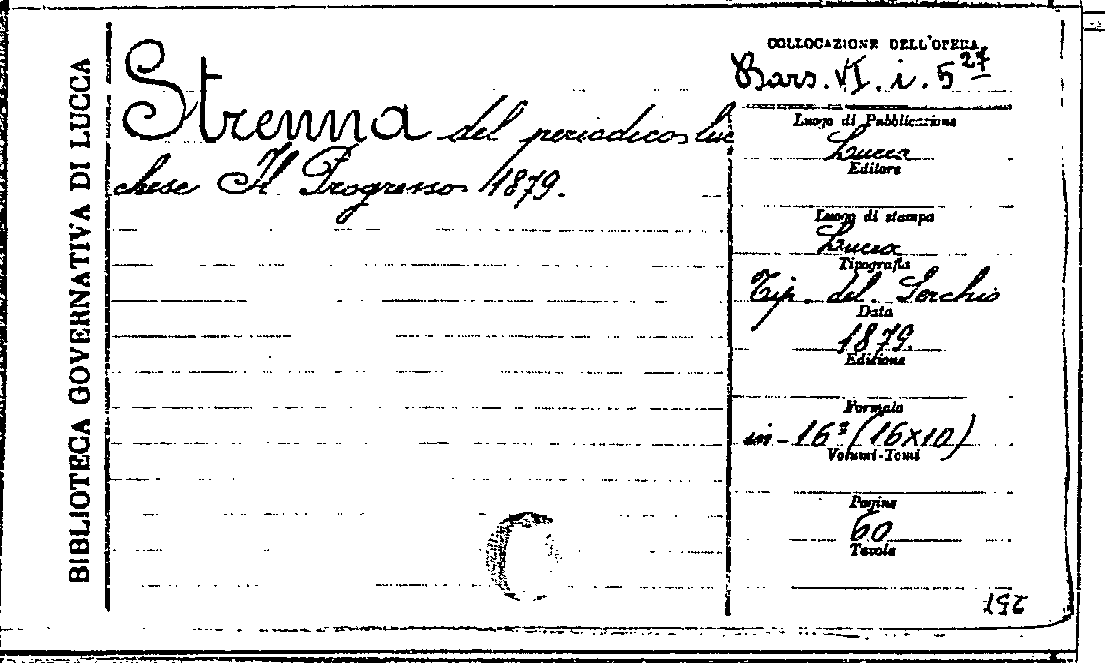 BIBLIOTECA GOVERNATIVA DI LUCCA
Strenna del periodico luc
chese Il Progresso 1879.
COLLOCAZIONE DELL'OPERA
Bars. VI. i. 5 27
Luogo di Pubblicazione
Lucca
Editore
Luogo di stampa
Lucca
Tipografia
Tip. del Serchio
Data
1879.
Edizione
Formato
in-16º (16x10)
Volumi-Tomi
Pagine
60
Tavole